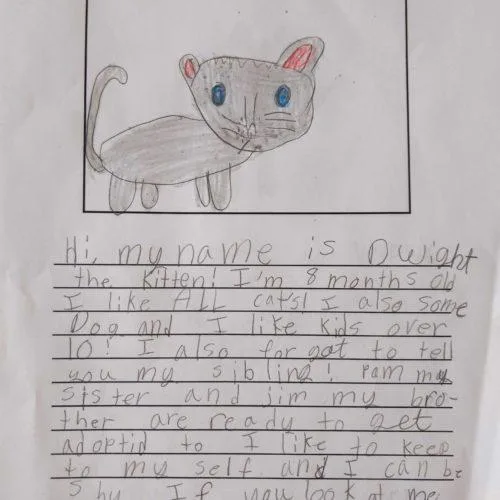 Hi, my name is Dwight
the Kitten! I'm 8 months old
I like ALL cats! I also some
Dog and I like kids over
10! I also forgot to tell
you my sibling! Pam my
sister and jim my bro-
ther are ready to get
adoptid to I like to keep
to my self and I can be
Shy. If you look at me